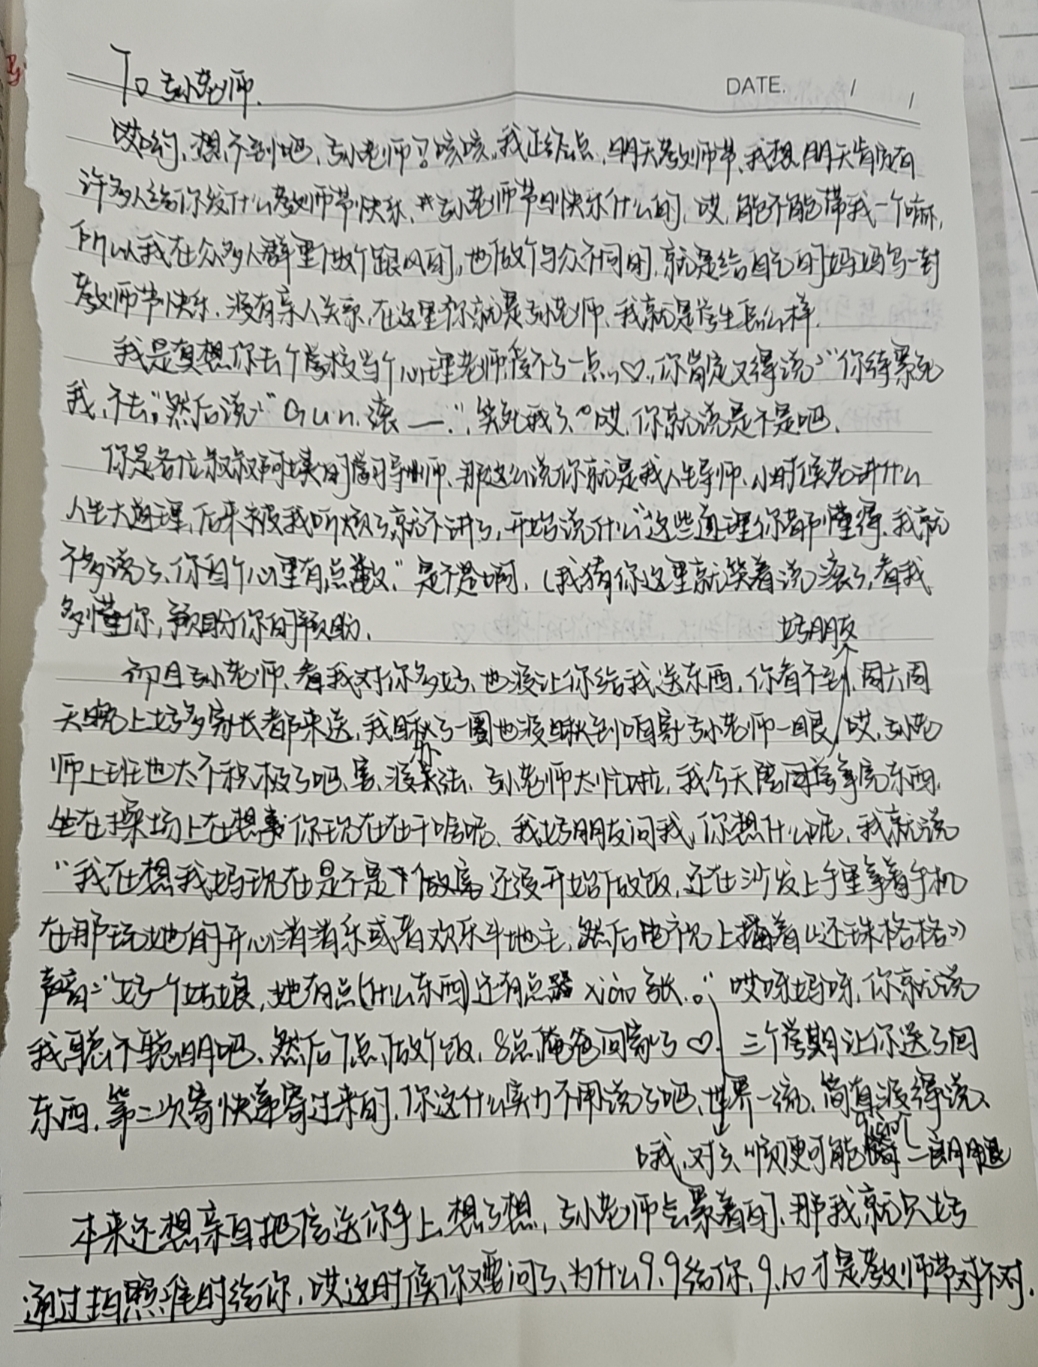 To 孙老师.
DATE. / /
哎哟,想不到吧,孙老师?咳咳,我正经点,明天教师节,我想明天肯定有
许多人给你发什么教师节快乐,孙老师节日快乐什么的,哎,能不能带我一个嘛,
所以我在众多人群里做个跟风的,也做个与众不同的,就是给自己的妈妈写一封
教师节快乐,没有亲人关系,在这里你就是孙老师,我就是学生怎么样.
我是真想你去个学校当个心理老师,受不了一点♡,你肯定又得说:“你待累死
我,不去,”然后说:“Gun.滚一.”,笑死我了,哎,你就说是不是吧.
你是各位叔叔阿姨的学习导师,那这么说你就是我人生导师,小时候老讲什么
人生大道理,后来被我听烦了就不讲了,开始说什么“这些道理你都懂得,我就
不多说了,你自个心里有点数,”是不是啊,(我猜你这里就笑着说滚了,看我
多懂你,预助你的预助.
好朋友
而且孙老师,看我对你多好,也没让你给我送东西,你看不到,周六周
天晚上好多家长都来送,我瞅了一圈也没瞅到咱家孙老师一眼,哎,孙老
师上班也太不积极了吧,害,没办法,孙老师太忙啦,我今天陪同学拿完东西,
坐在操场上在想你现在在干啥呢,我好朋友问我,你想什么呢,我就说
“我在想我妈现在是不是个做 还没开始做饭,还在沙发上手里拿着手机
在那玩她的开心消消乐或者欢乐斗地主,然后电视上播着《还珠格格》
声音:“好个姑娘,她有点(什么东西)还有点嚣xiao张.”,哎呀妈呀,你就说
我聪不聪明吧,然后7点做个饭,8点俺爸回家了♡.三个学期让你送了回
东西,第二次寄快递寄过来的,你这什么实力不用说了吧,世界一流,简直没得说,
哦,对了,顺便可能 二郎腿
本来还想亲自把信送你手上,想了想,孙老师会累着的,那我就只好
通过拍照准时给你,哎这时候你又要问了,为什么9.9给你,9.10才是教师节对不对.